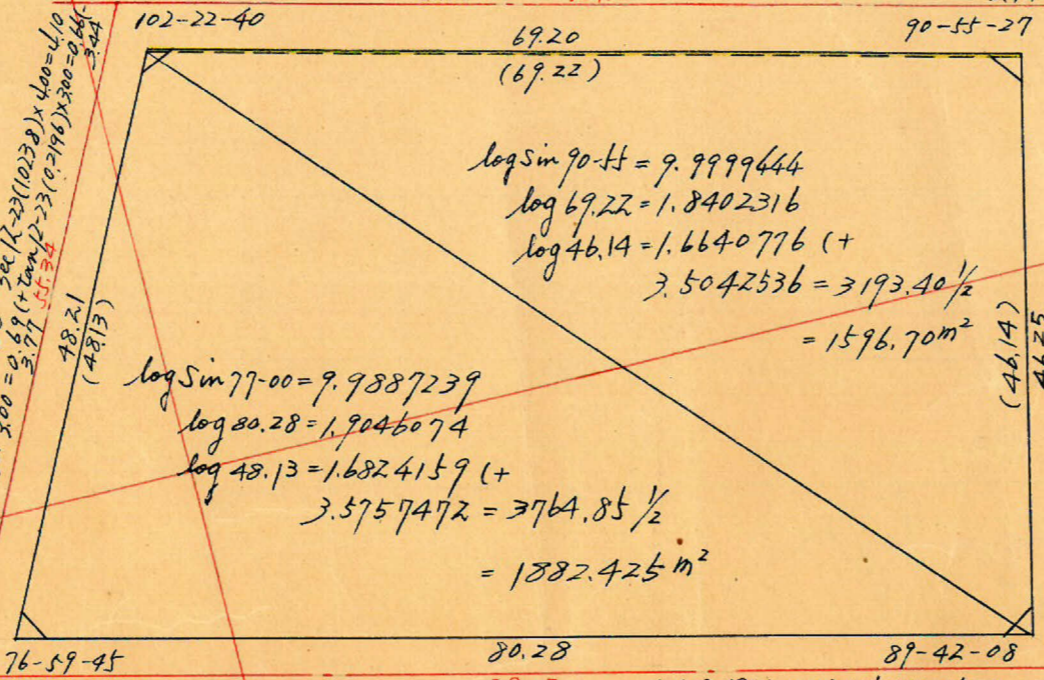 102-22-40
90-55-27
69.20
(69.22)
sec12-23(1.0238)×4.00=4.10
3.00=0.69(+tan12-23(0.2196)×3.00=0.66(-
3.77
3.44
55.34
48.21
(48.13)
log sin 90-55 = 9.9999444
log 69.22 = 1.8402316
log 46.14 = 1.6640776 (+
3.5042536 = 3193.40 1/2
= 1596.70 m²
(46.14)
46.25
log sin 77-00 = 9.9887239
log 80.28 = 1.9046074
log 48.13 = 1.6824159 (+
3.5757472 = 3764.85 1/2
= 1882.425 m²
76-59-45
80.28
89-42-08